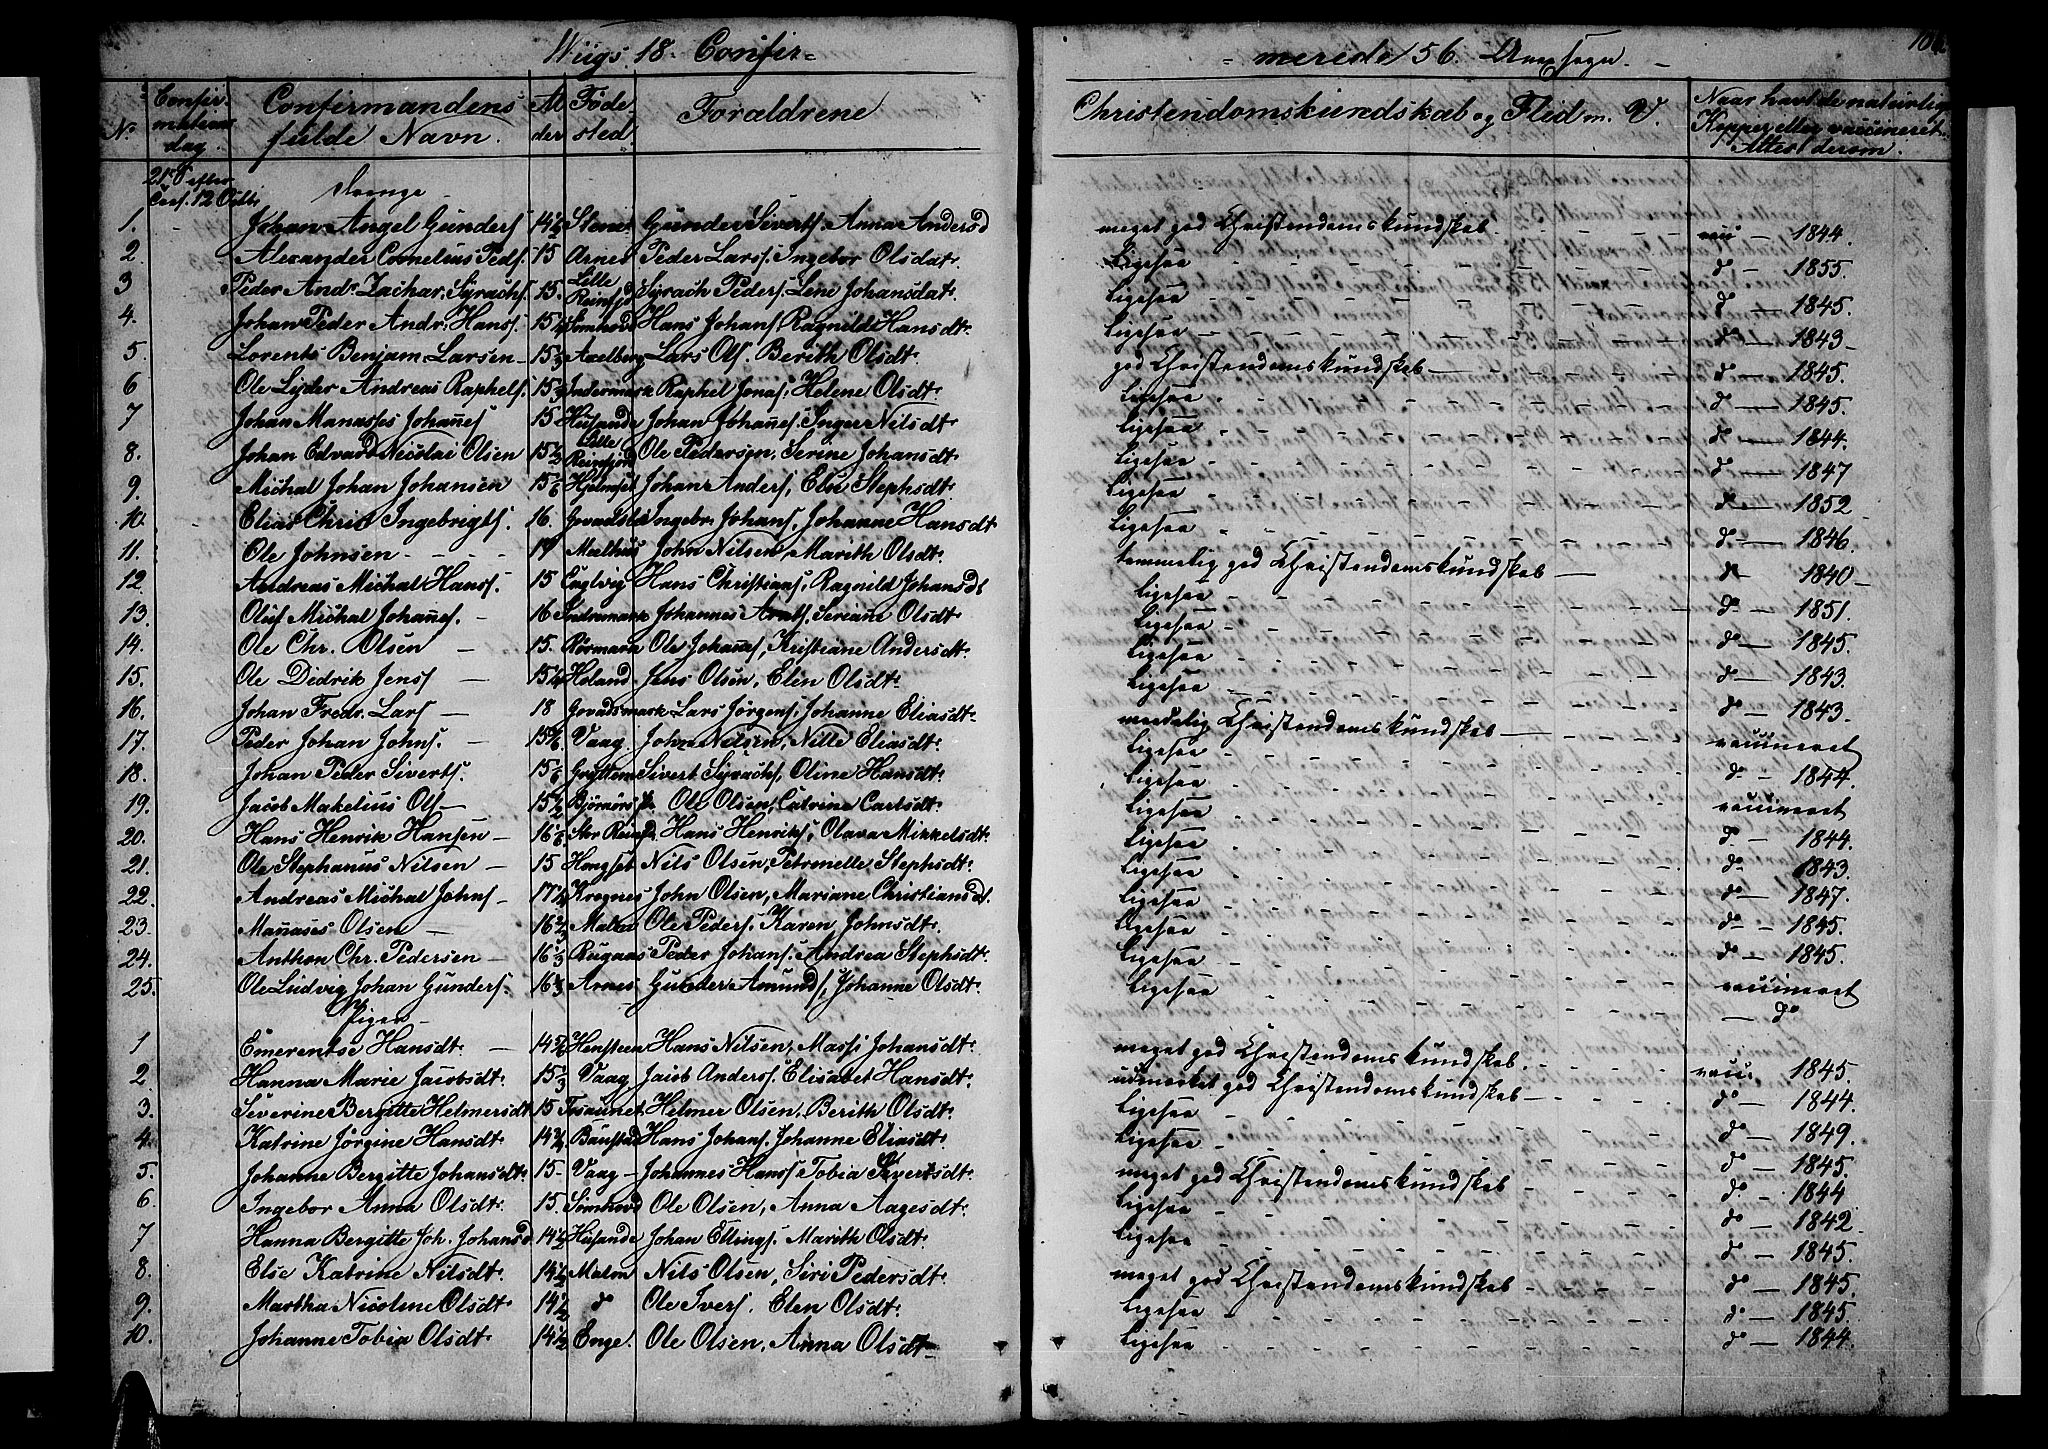 Wiigs 18 Confir=
= merede 56. Anexsogn. —
No
Confirmations dag.
Confirmandens fulde Navn.
Alder
Føde sted
Foraldrene
Christendomskundskab og Flid m. V.
Naar havt de naturlige Kopper eller vaccineret. Attest derom.
21de S. efter 12 Octbr.
Drenge
1. Johan Angel Gunders 14½ Gunder Siverts. Anna Andersd meget god Christendomskundskab vacc — 1844.
2 Alexander Cornelius Peds. 15 Arnes Peder Larss. Ingebor Olsdat. Ligesaa d — 1855.
3 Peder Andr. Zachar. Syrachs. 15. Lille Reinsfjd Syrach Peders. Lene Johansdat. Ligesaa d — 1845.
4. Johan Peder Andr. Hanss. 15¼ Hans Johans, Ragnild Hansdt. Ligesaa d — 1843
5. Lorents Benjam. Larsen 15⅔ Axelberg Lars Ols. Berith Olsdt. god Christendomskundskab d — 1845.
6 Ole Lyder Andreas Raphels. 15 Indermark Raphel Jonas. Helene Olsdt. Ligesaa d — 1845.
7 Johan Manasses Johañes 15 Husande Johan Johañes. Inger Nilsdt Ligesaa d — 1844.
8. Johan Edvard Nicolai Olsen 15½ Lille Reinsfjord Ole Pedersen, Serine Johansdt. Ligesaa d — 1847
9. Michal Johan Johansen 15 Hjelmset Johan Anders, Elen Stephsdt. Ligesaa d — 1852
10. Elias Chris Ingebrigts. 16. Ingebr. Johans, Johanne Hansdt Ligesaa d — 1846.
11. Ole Johnsen 19 Malhus John Nilsen, Marith Olsdt. temmelig god Christendomskundskab d 1840
12. Andreas Michal Hanss. 15 Hans Christians, Ragnild Johansdt Ligesaa d — 1851.
13. Oluf Michal Johañes. 16 Indremark Johannes Arnts, Seriane Olsdt Ligesaa d — 1845.
14. Ole Chr. Olsen 15. Rørmark Ole Johañes, Kristiane Andersdt. Ligesaa d — 1843.
15. Ole Didrik Jens 15¼ Holand Jens Olsen, Elen Olsdt. Ligesaa d — 1843
16. Johan Fredr. Lars 18 Govadsmark Lars Jørgens, Johanne Eliasdt. maadelig Christendomskundskab vaccineret
17. Peder Johan Johns. 15 Vaag. John Nilsen, Nille Eliasdt. Ligesaa d — 1844.
18. Johan Peder Siverts. 15 Sivert Syrachs, Oline Hansdt. Ligesaa vaccineret
19. Jacob Makelius Ols 15 Bjørnørs Ole Olsen, Catrine Carlsdt. Ligesaa d. 1844.
20. Hans Henrik Hansen 16 Stor Reinsfd. Hans Henriks, Olava Mikkelsdt. Ligesaa d. 1843.
21. Ole Stephanus Nilsen 15 Hongset Nils Olsen, Petronelle Stephsdt. Ligesaa d — 1847.
22. Andreas Michal Johns 17½ Krognes John Olsen, Mariane Christiansdt. Ligesaa d — 1845.
23. Mañases Olsen 16½ Malm Ole Peders. Karen Johnsdt. Ligesaa d — 1845.
24. Anthon Chr. Pedersen 16 Rugaas Peder Johans. Andrea Stephsdt. Ligesaa vaccineret
25. Ole Ludvig Johan Gunders. 16 Arnes Gunder Amunds, Johanne Olsdt. Ligesaa — d
Piger
1 Emerentse Hansdt. 14 Hensteen Hans Nilsen, Massi Johansdt. meget god Christendomskundskab vacc. 1845.
2. Hanna Marie Jacobsdt. 15⅓ Vaag Jacob Anders. Elisabet Hansdt. udmerket god Christendomskundskab d — 1844.
3. Severine Bergitte Helmersdt 15 Helmer Olsen, Berith Olsdt. Ligesaa d — 1849.
4. Katrine Jørgine Hansdt. 14 Baustad Hans Johans. Johanne Eliasdt. Ligesaa d — 1845.
5. Johanne Bergitte Johansdt. 15. Vaag Johannes Hanss Tobia Sivertsdt. meget god Christendomskundskab d — 1844
6 Ingebor Anna Olsdt. 15. Ole Olsen, Anna Aagesdt. Ligesaa d — 1842
7 Hanna Bergitte Joh. Johansd 14½ Husande Johan Ellings. Marith Olsdt. Ligesaa d — 1845.
8. Else Katrine Nilsdt. 14½ Malm Nils Olsen, Siri Pedersdt. meget god Christendomskundskab d — 1845.
9. Martha Nicoline Olsdt. 14½ d Ole Ivers. Elen Olsdt. Ligesaa d — 1845.
10. Johanne Tobia Olsdt 14½ Enge. Ole Olsen, Anna Olsdt. Ligesaa d — 1844.